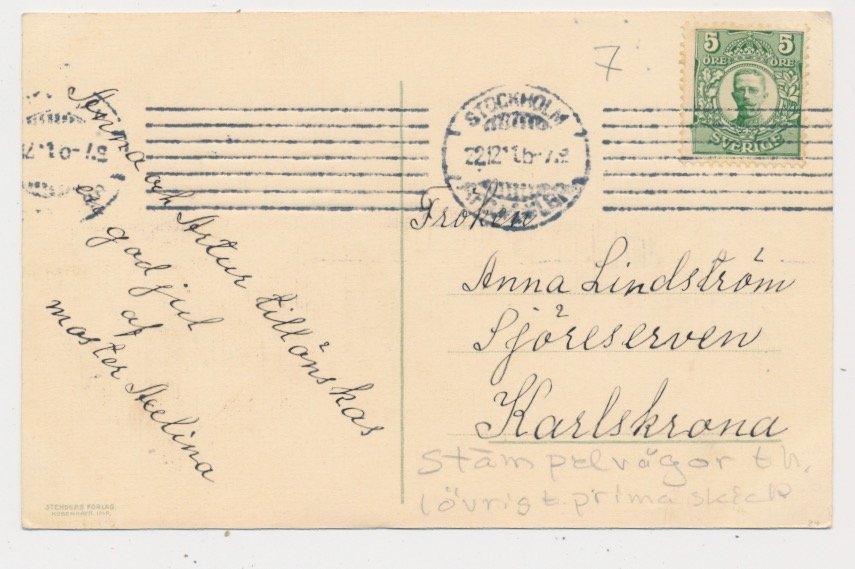 7
5 5
ÖRE ÖRE
SVERIGE
STOCKHOLM
22.12.16-7.8
Fröken
Anna Lindström
Sjöreserven
Karlskrona
och Artur tillönskas
en god jul
af
moster Aelina
Stämpelvågor th.
I övrigt prima skick
STENDERS FORLAG
KØBENHAVN. IMP.